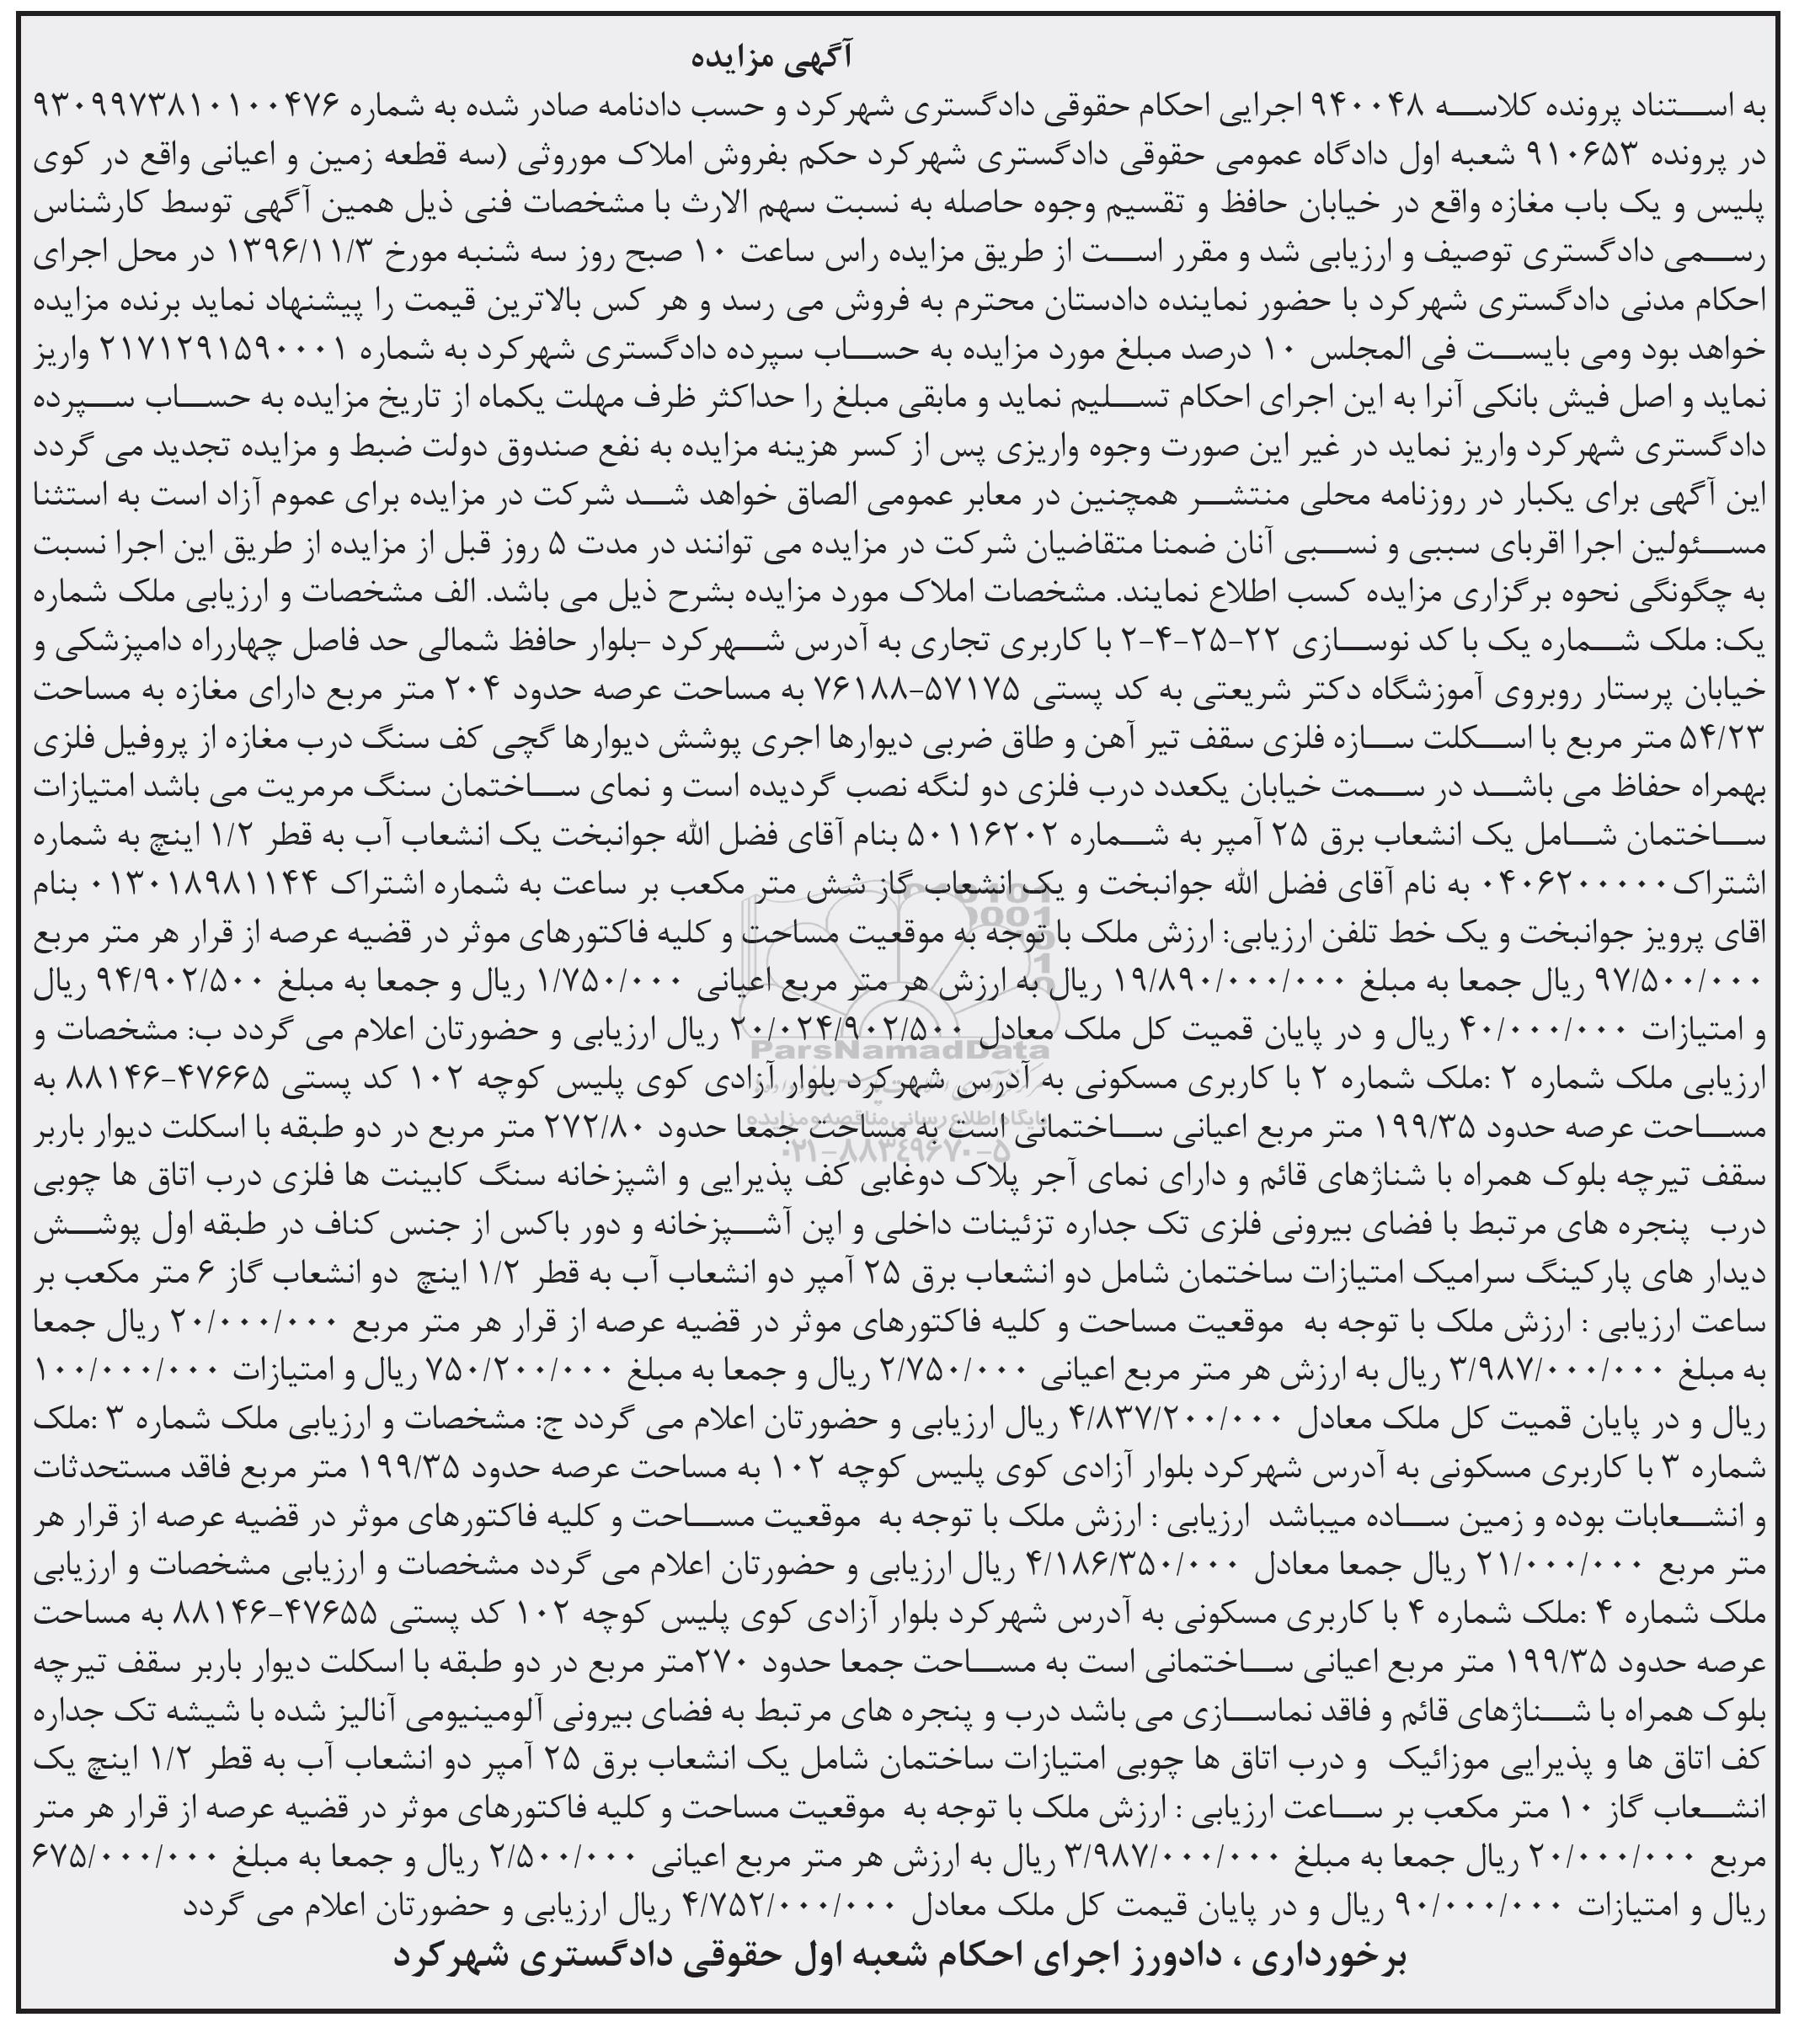 آگهی مزایده
به استناد پرونده کلاسه ۹۴۰۰۴۸ اجرایی احکام حقوقی دادگستری شهرکرد و حسب دادنامه صادر شده به شماره ۹۳۰۹۹۷۳۸۱۰۱۰۰۴۷۶
در پرونده ۹۱۰۶۵۳ شعبه اول دادگاه عمومی حقوقی دادگستری شهرکرد حکم بفروش املاک موروثی (سه قطعه زمین و اعیانی واقع در کوی
پلیس و یک باب مغازه واقع در خیابان حافظ و تقسیم وجوه حاصله به نسبت سهم الارث با مشخصات فنی ذیل همین آگهی توسط کارشناس
رسمی دادگستری توصیف و ارزیابی شد و مقرر است از طریق مزایده راس ساعت ۱۰ صبح روز سه شنبه مورخ ۱۳۹۶/۱۱/۳ در محل اجرای
احکام مدنی دادگستری شهرکرد با حضور نماینده دادستان محترم به فروش می رسد و هر کس بالاترین قیمت را پیشنهاد نماید برنده مزایده
خواهد بود ومی بایست فی المجلس ۱۰ درصد مبلغ مورد مزایده به حساب سپرده دادگستری شهرکرد به شماره ۲۱۷۱۲۹۱۵۹۰۰۰۱ واریز
نماید و اصل فیش بانکی آنرا به این اجرای احکام تسلیم نماید و مابقی مبلغ را حداکثر ظرف مهلت یکماه از تاریخ مزایده به حساب سپرده
دادگستری شهرکرد واریز نماید در غیر این صورت وجوه واریزی پس از کسر هزینه مزایده به نفع صندوق دولت ضبط و مزایده تجدید می گردد
این آگهی برای یکبار در روزنامه محلی منتشر همچنین در معابر عمومی الصاق خواهد شد شرکت در مزایده برای عموم آزاد است به استثنا
مسئولین اجرا اقربای سببی و نسبی آنان ضمنا متقاضیان شرکت در مزایده می توانند در مدت ۵ روز قبل از مزایده از طریق این اجرا نسبت
به چگونگی نحوه برگزاری مزایده کسب اطلاع نمایند. مشخصات املاک مورد مزایده بشرح ذیل می باشد. الف مشخصات و ارزیابی ملک شماره
یک: ملک شماره یک با کد نوسازی ۲۲-۲۵-۴-۲ با کاربری تجاری به آدرس شهرکرد -بلوار حافظ شمالی حد فاصل چهارراه دامپزشکی و
خیابان پرستار روبروی آموزشگاه دکتر شریعتی به کد پستی ۵۷۱۷۵-۷۶۱۸۸ به مساحت عرصه حدود ۲۰۴ متر مربع دارای مغازه به مساحت
۵۴/۲۳ متر مربع با اسکلت سازه فلزی سقف تیر آهن و طاق ضربی دیوارها اجری پوشش دیوارها گچی کف سنگ درب مغازه از پروفیل فلزی
بهمراه حفاظ می باشد در سمت خیابان یکعدد درب فلزی دو لنگه نصب گردیده است و نمای ساختمان سنگ مرمریت می باشد امتیازات
ساختمان شامل یک انشعاب برق ۲۵ آمپر به شماره ۵۰۱۱۶۲۰۲ بنام آقای فضل الله جوانبخت یک انشعاب آب به قطر ۱/۲ اینچ به شماره
اشتراک۰۴۰۶۲۰۰۰۰۰ به نام آقای فضل الله جوانبخت و یک انشعاب گاز شش متر مکعب بر ساعت به شماره اشتراک ۰۱۳۰۱۸۹۸۱۱۴۴ بنام
اقای پرویز جوانبخت و یک خط تلفن ارزیابی: ارزش ملک با توجه به موقعیت مساحت و کلیه فاکتورهای موثر در قضیه عرصه از قرار هر متر مربع
۹۷/۵۰۰/۰۰۰ ریال جمعا به مبلغ ۱۹/۸۹۰/۰۰۰/۰۰۰ ریال به ارزش هر متر مربع اعیانی ۱/۷۵۰/۰۰۰ ریال و جمعا به مبلغ ۹۴/۹۰۲/۵۰۰ ریال
و امتیازات ۴۰/۰۰۰/۰۰۰ ریال و در پایان قمیت کل ملک معادل ۲۰/۰۲۴/۹۰۲/۵۰۰ ریال ارزیابی و حضورتان اعلام می گردد ب: مشخصات و
ارزیابی ملک شماره ۲ :ملک شماره ۲ با کاربری مسکونی به آدرس شهرکرد بلوار آزادی کوی پلیس کوچه ۱۰۲ کد پستی ۴۷۶۶۵-۸۸۱۴۶ به
مساحت عرصه حدود ۱۹۹/۳۵ متر مربع اعیانی ساختمانی است به مساحت جمعا حدود ۲۷۲/۸۰ متر مربع در دو طبقه با اسکلت دیوار باربر
سقف تیرچه بلوک همراه با شناژهای قائم و دارای نمای آجر پلاک دوغابی کف پذیرایی و اشپزخانه سنگ کابینت ها فلزی درب اتاق ها چوبی
درب پنجره های مرتبط با فضای بیرونی فلزی تک جداره تزئینات داخلی و اپن آشپزخانه و دور باکس از جنس کناف در طبقه اول پوشش
دیدار های پارکینگ سرامیک امتیازات ساختمان شامل دو انشعاب برق ۲۵ آمپر دو انشعاب آب به قطر ۱/۲ اینچ دو انشعاب گاز ۶ متر مکعب بر
ساعت ارزیابی : ارزش ملک با توجه به موقعیت مساحت و کلیه فاکتورهای موثر در قضیه عرصه از قرار هر متر مربع ۲۰/۰۰۰/۰۰۰ ریال جمعا
به مبلغ ۳/۹۸۷/۰۰۰/۰۰۰ ریال به ارزش هر متر مربع اعیانی ۲/۷۵۰/۰۰۰ ریال و جمعا به مبلغ ۷۵۰/۲۰۰/۰۰۰ ریال و امتیازات ۱۰۰/۰۰۰/۰۰۰
ریال و در پایان قمیت کل ملک معادل ۴/۸۳۷/۲۰۰/۰۰۰ ریال ارزیابی و حضورتان اعلام می گردد ج: مشخصات و ارزیابی ملک شماره ۳ :ملک
شماره ۳ با کاربری مسکونی به آدرس شهرکرد بلوار آزادی کوی پلیس کوچه ۱۰۲ به مساحت عرصه حدود ۱۹۹/۳۵ متر مربع فاقد مستحدثات
و انشعابات بوده و زمین ساده میباشد ارزیابی : ارزش ملک با توجه به موقعیت مساحت و کلیه فاکتورهای موثر در قضیه عرصه از قرار هر
متر مربع ۲۱/۰۰۰/۰۰۰ ریال جمعا معادل ۴/۱۸۶/۳۵۰/۰۰۰ ریال ارزیابی و حضورتان اعلام می گردد مشخصات و ارزیابی مشخصات و ارزیابی
ملک شماره ۴ :ملک شماره ۴ با کاربری مسکونی به آدرس شهرکرد بلوار آزادی کوی پلیس کوچه ۱۰۲ کد پستی ۴۷۶۵۵-۸۸۱۴۶ به مساحت
عرصه حدود ۱۹۹/۳۵ متر مربع اعیانی ساختمانی است به مساحت جمعا حدود ۲۷۰متر مربع در دو طبقه با اسکلت دیوار باربر سقف تیرچه
بلوک همراه با شناژهای قائم و فاقد نماسازی می باشد درب و پنجره های مرتبط به فضای بیرونی آلومینیومی آنالیز شده با شیشه تک جداره
کف اتاق ها و پذیرایی موزائیک و درب اتاق ها چوبی امتیازات ساختمان شامل یک انشعاب برق ۲۵ آمپر دو انشعاب آب به قطر ۱/۲ اینچ یک
انشعاب گاز ۱۰ متر مکعب بر ساعت ارزیابی : ارزش ملک با توجه به موقعیت مساحت و کلیه فاکتورهای موثر در قضیه عرصه از قرار هر متر
مربع ۲۰/۰۰۰/۰۰۰ ریال جمعا به مبلغ ۳/۹۸۷/۰۰۰/۰۰۰ ریال به ارزش هر متر مربع اعیانی ۲/۵۰۰/۰۰۰ ریال و جمعا به مبلغ ۶۷۵/۰۰۰/۰۰۰
ریال و امتیازات ۹۰/۰۰۰/۰۰۰ ریال و در پایان قیمت کل ملک معادل ۴/۷۵۲/۰۰۰/۰۰۰ ریال ارزیابی و حضورتان اعلام می گردد
برخورداری ، دادورز اجرای احکام شعبه اول حقوقی دادگستری شهرکرد
ParsNamadData
پایگاه اطلاع رسانی مناقصه و مزایده
۰۲۱-۸۸۳۴۹۶۷۰-۵